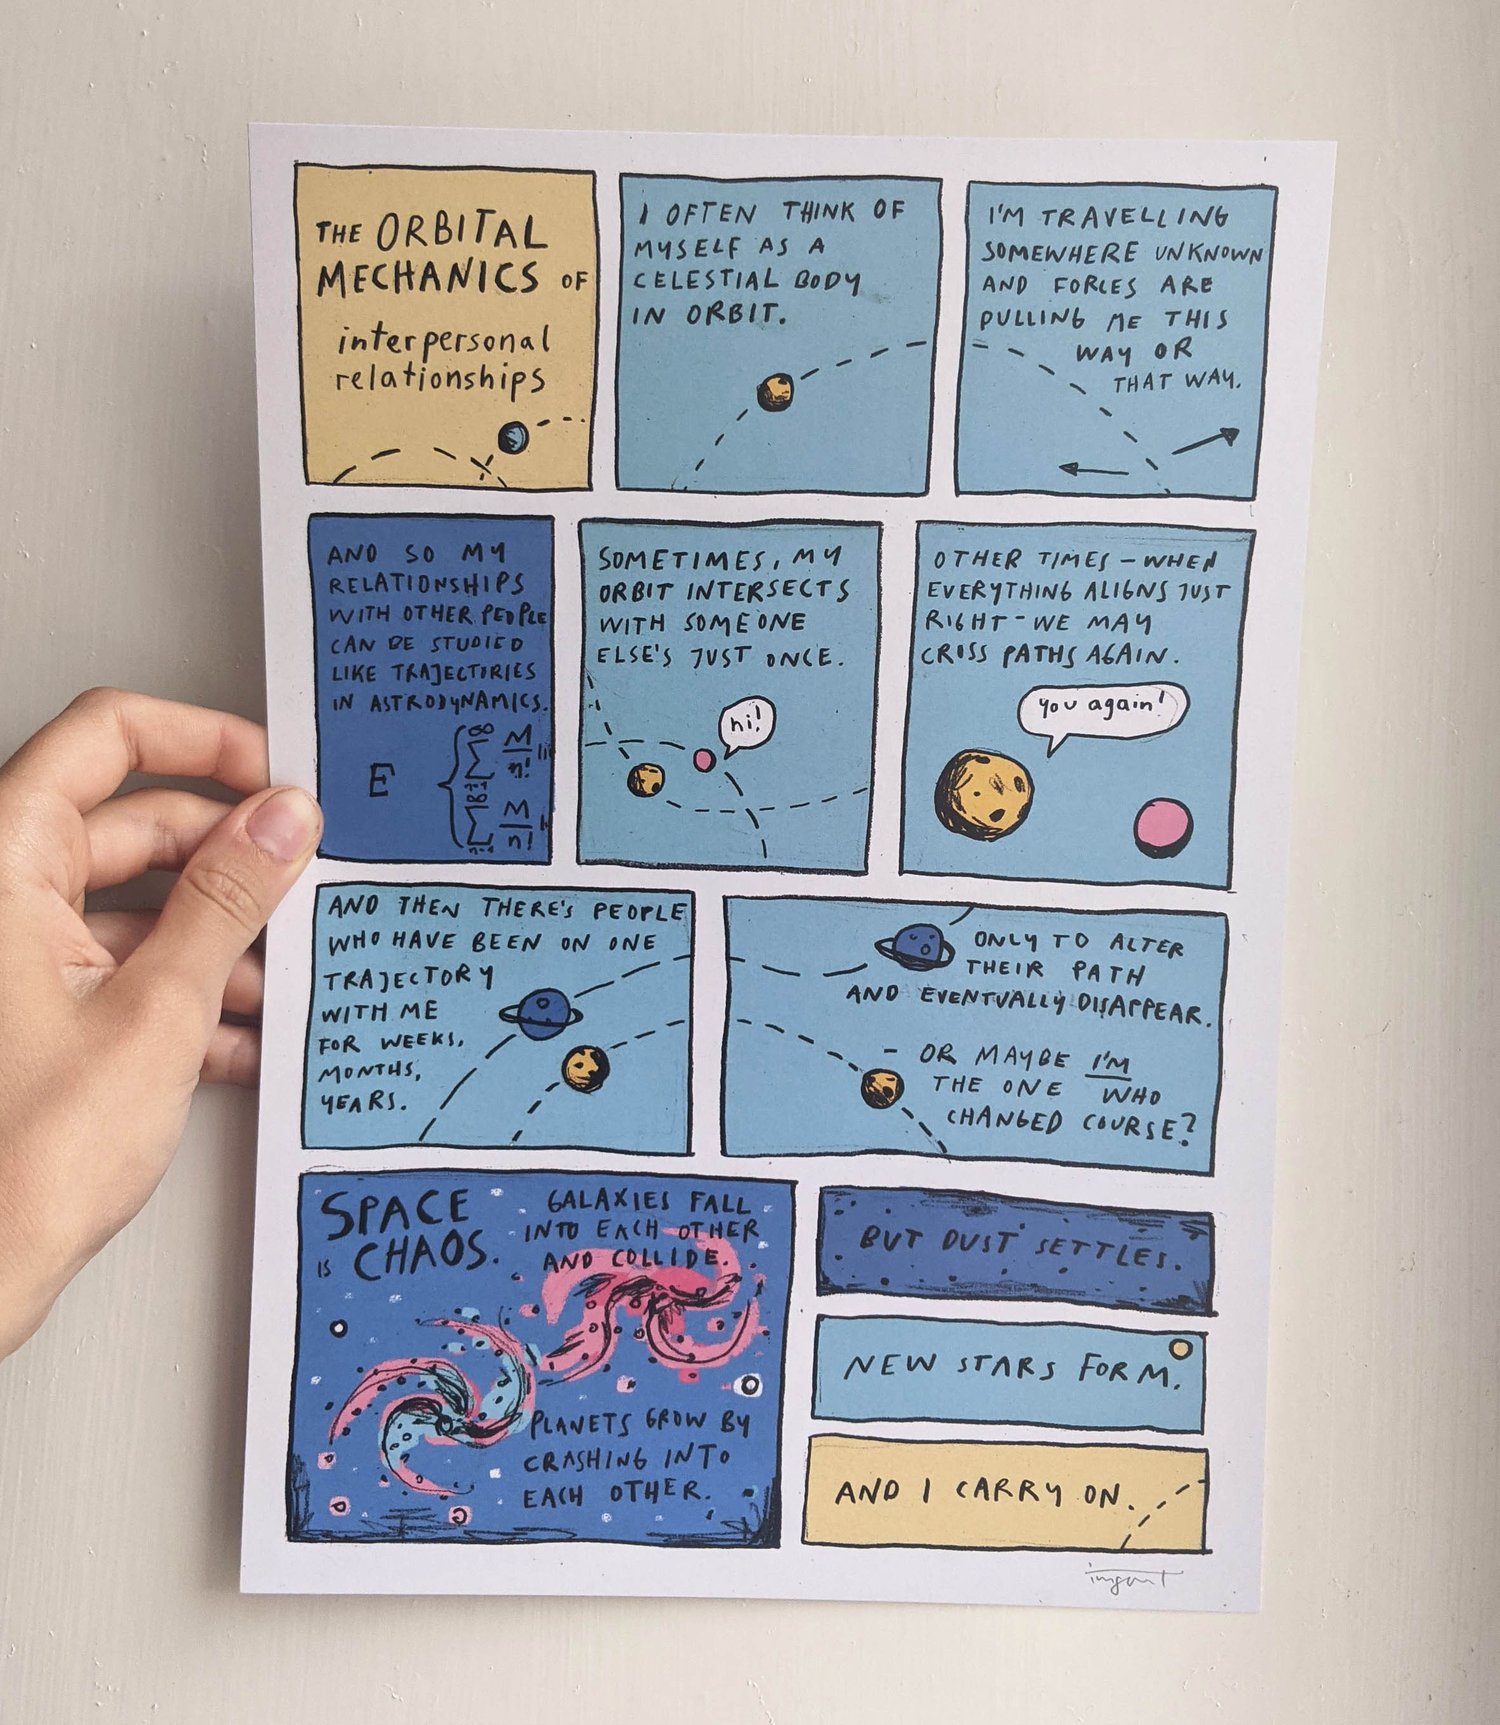 THE ORBITAL
MECHANICS OF
interpersonal
relationships
I OFTEN THINK OF
MYSELF AS A
CELESTIAL BODY
IN ORBIT.
I'M TRAVELLING
SOMEWHERE UNKNOWN
AND FORCES ARE
PULLING ME THIS
WAY OR
THAT WAY.
AND SO MY
RELATIONSHIPS
WITH OTHER PEOPLE
CAN BE STUDIED
LIKE TRAJECTORIES
IN ASTRODYNAMICS.
E
SOMETIMES, MY
ORBIT INTERSECTS
WITH SOMEONE
ELSE'S JUST ONCE.
hi!
OTHER TIMES - WHEN
EVERYTHING ALIGNS JUST
RIGHT - WE MAY
CROSS PATHS AGAIN.
you again!
AND THEN THERE'S PEOPLE
WHO HAVE BEEN ON ONE
TRAJECTORY
WITH ME
FOR WEEKS,
MONTHS,
YEARS.
ONLY TO ALTER
THEIR PATH
AND EVENTUALLY DISAPPEAR.
- OR MAYBE I'M
THE ONE WHO
CHANGED COURSE?
SPACE
IS CHAOS.
GALAXIES FALL
INTO EACH OTHER
AND COLLIDE.
PLANETS GROW BY
CRASHING INTO
EACH OTHER.
BUT DUST SETTLES.
NEW STARS FORM.
AND I CARRY ON.